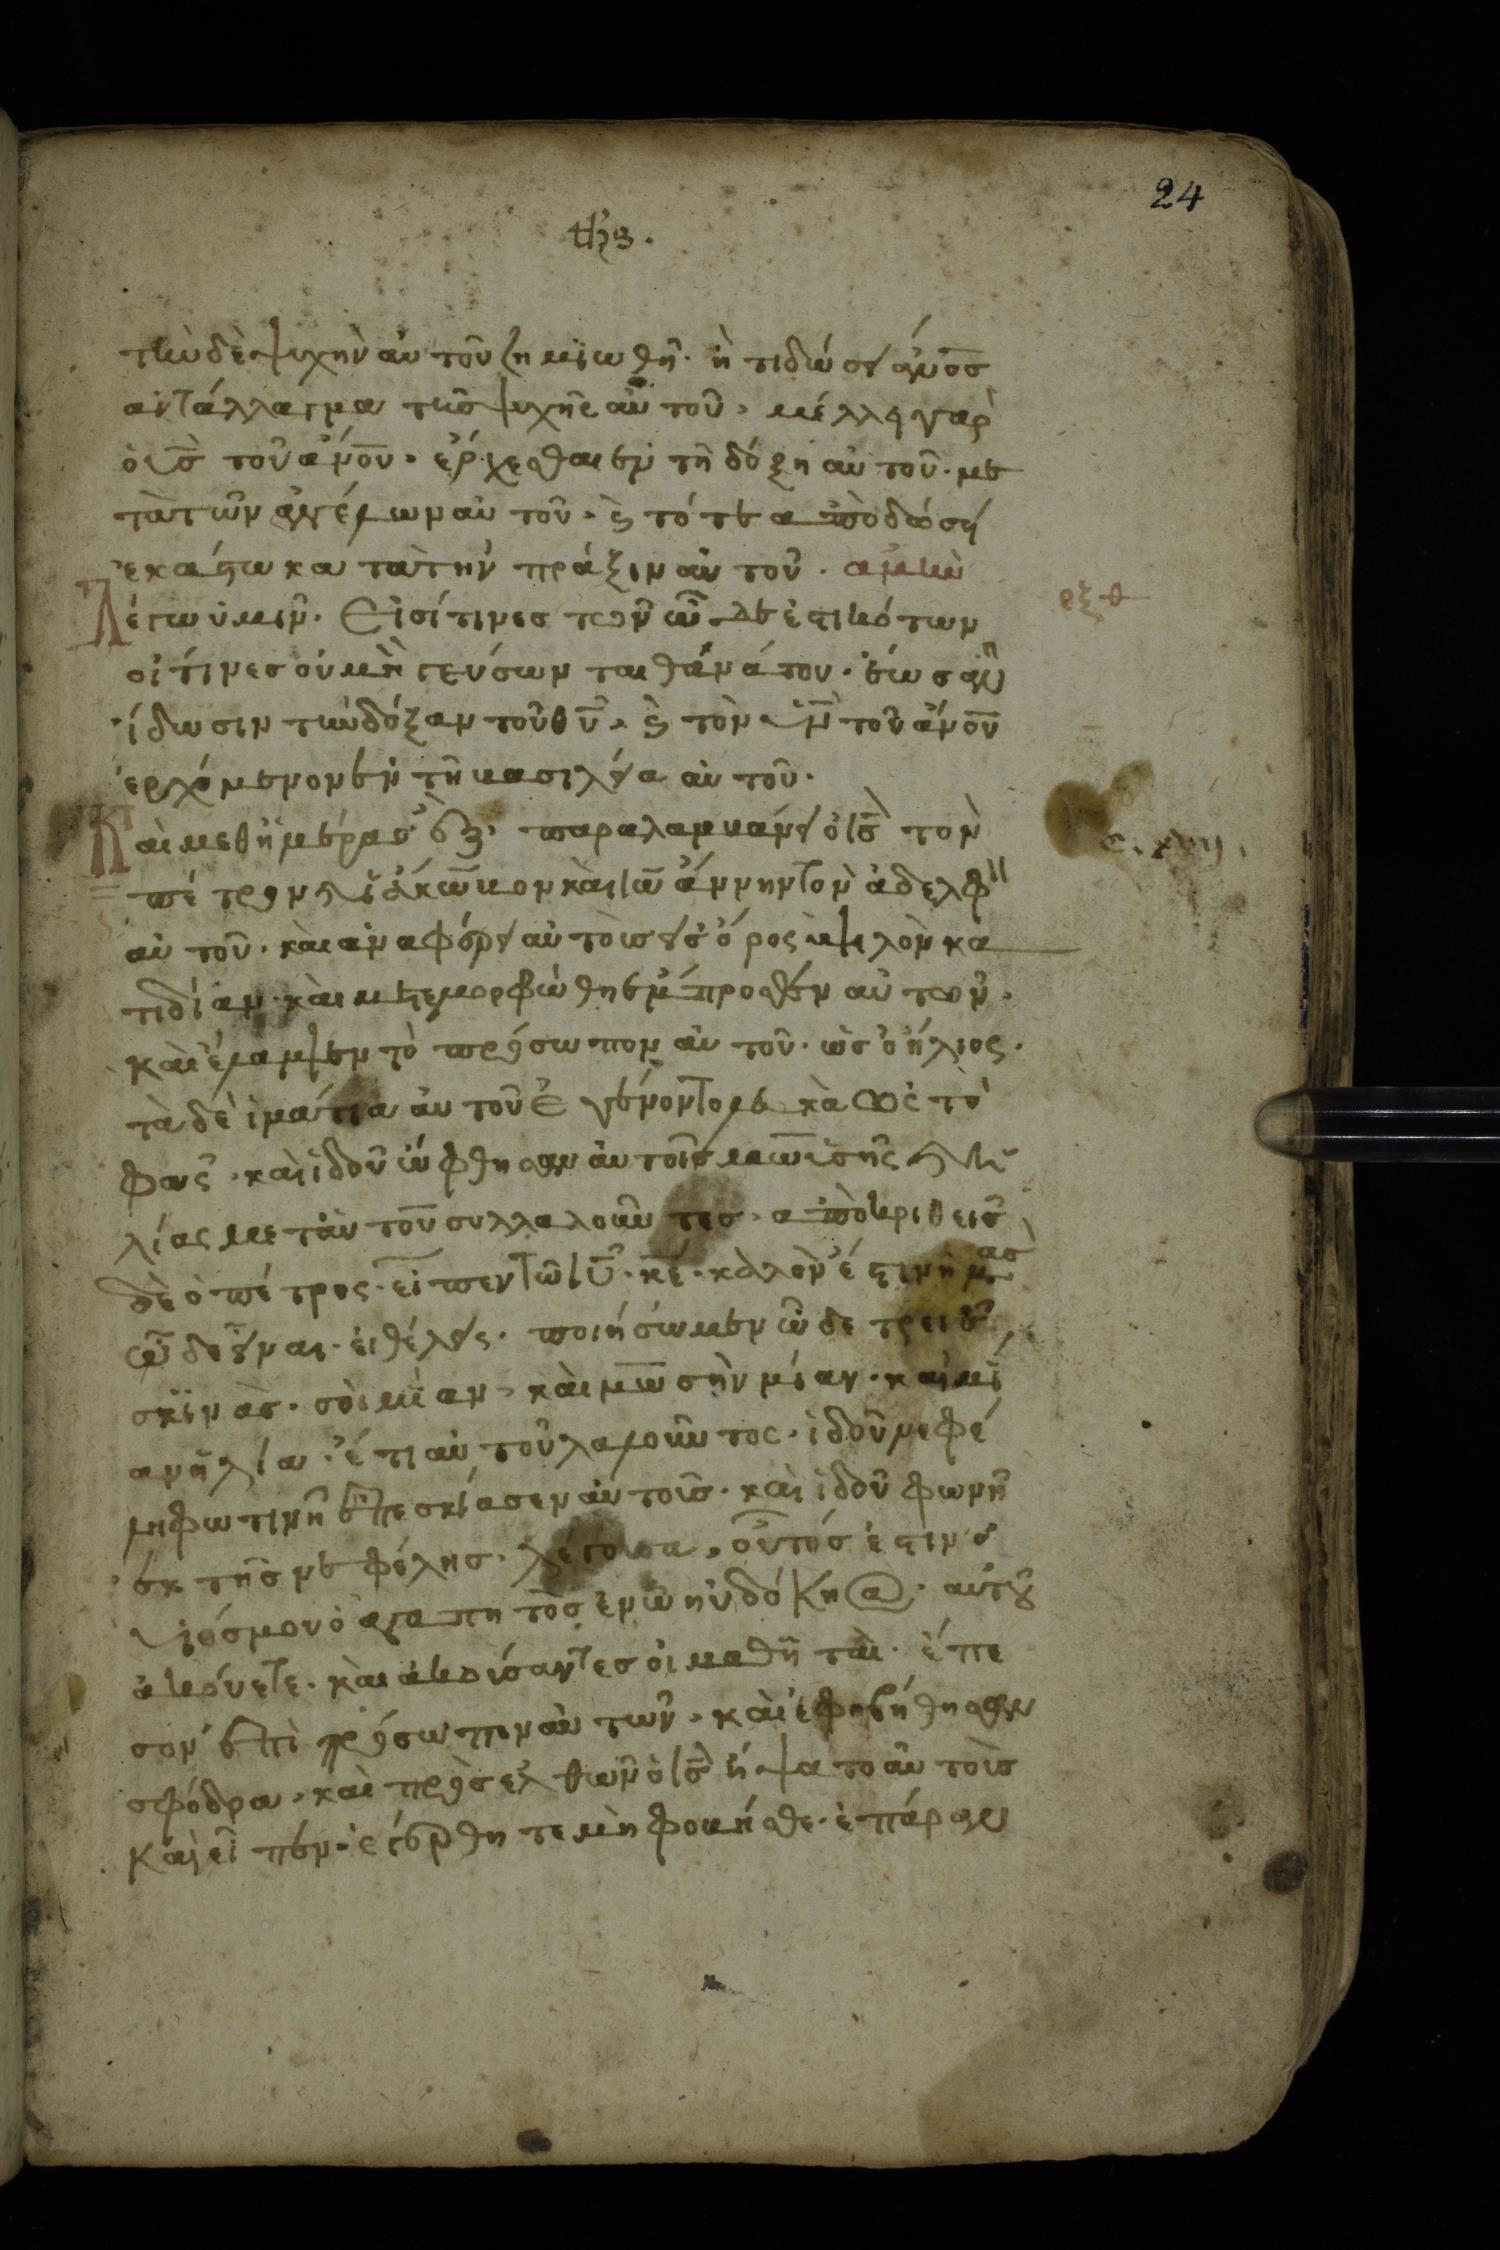 24
τὴν δὲ ψυχὴν αὐτοῦ ζημϊωθῆ· ἢ τι δώσει ἄνο̅σ
ἀντάλλαγμα τῆσ ψυχῆς αὐτοῦ· μέλλει γαρ
ὁ υι̅σ̅ τοῦ ἀν̅ου̅· ἔρχεσθαι ἐν τῆ δόξη αὐτοῦ· με
τὰ τῶν ἀγγέλων αὐτοῦ· ϗ τότε ἀποδώσει
ἑκάστω κατὰ τὴν πράξιν αὐτοῦ· ἀμὴν
Λέγω ὑμῖν· Εἰσί τινες των ὧδε ἐστικότων
οἵτινες οὐ μὴ γεύσωνται θανάτου· ἕως ἂν
ἴδωσιν τὴν δόξαν τοῦ θυ̅· ϗ τὸν υν̅ τοῦ ἀνου̅
ἐρχόμενον ἐν τῆ βασιλεία αὐτοῦ·
Και μεθ ἡμέρας ἓξ· παραλαμβάνει ὁ ισ̅ τον
πέτρον ϗ ἰάκωβον και ιω̅άννην τὸν ἀδελφὸν
αὐτοῦ· και ἀναφέρει αὐτοὺς εἰς ὄρος ὑψιλὸν κα
τιδίαν· και μετεμορφώθη ἔμπροσθεν αὐτων·
και ἔλαμψεν τὸ πρόσωπον αὐτοῦ· ὡς ὁ ἥλιος·
τὰ δὲ ἱμάτια αὐτοῦ ἐγένοντο λευκὰ ὡς τὸ
φως· και ἰδοῦ ὤφθησαν αὐτοῖς μωϊσῆς ϗ ἡ
λίας μετ αὐτοῦ συλλαλοῦντες· ἀποκριθεις
δὲ ὁ πέτρος· εἶπεν τῶ ιυ̅· κε̅· καλὸν ἐστιν ἡμας
ὧδε εἶναι· εἰ θέλεις· ποιήσωμεν ὧδε τρεις
σκϊνὰς· σοὶ μΐαν· και μω̅σὴν μίαν· και μί
αν ἠλία· ἔτι αὐτοῦ λαλοῦντος· ἰδοῦ νεφέ
λη φωτινὴ ἐπεσκίασεν αὐτοῖς· και ἰδοῦ φωνὴ
ἐκ τῆς νεφέλης· λέγουσα· οὗτός ἐστιν ὁ
υἱός μου ὁ ἀγαπητὸς ἐν ὧ ηὐδόκησα· αὐτοῦ
ἀκούετε· και ἀκούσαντες οἱ μαθηταὶ· ἔπε
σον ἐπὶ πρόσωπον αὐτων· και ἐφοβήθησαν
σφόδρα· και προσελθὼν ὁ ισ̅ ἥψατο αὐτοὶς
και εἶπεν· ἐγέρθητε μὴ φοβήσθε· ἐπάραν
ρξθ
c. xvij.